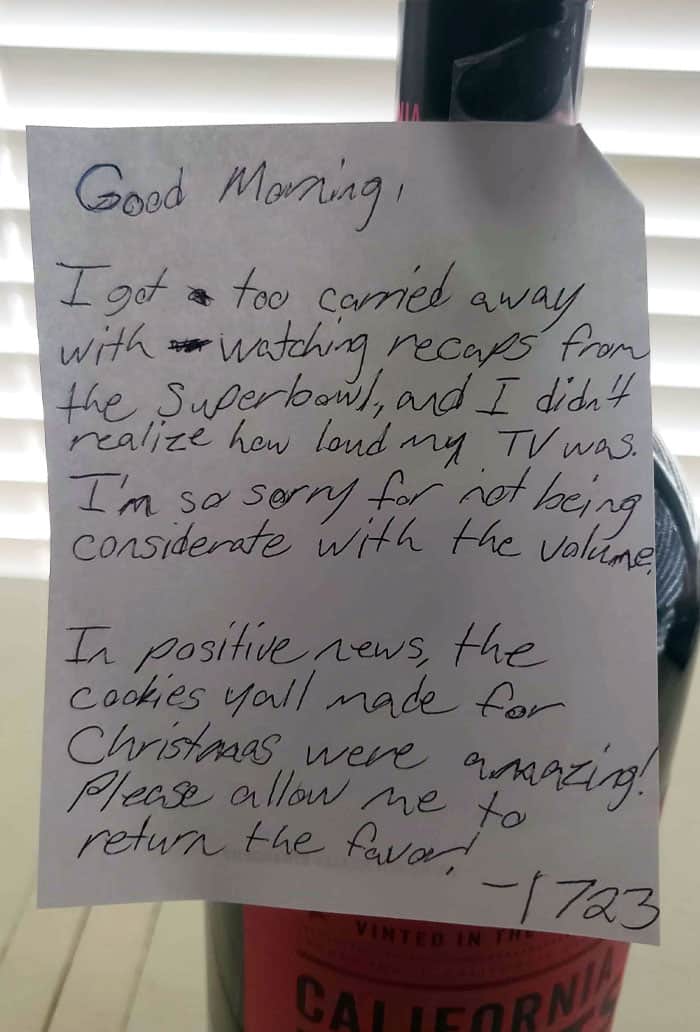 NIA
Good Morning,
I got too carried away
with watching recaps from
the Superbowl, and I didn't
realize how loud my TV was.
I'm so sorry for not being
considerate with the volume.
In positive news, the
cookies yall made for
Christmas were amazing!
Please allow me to
return the favor!
-1723
VINTED IN THE
CALIFORNIA